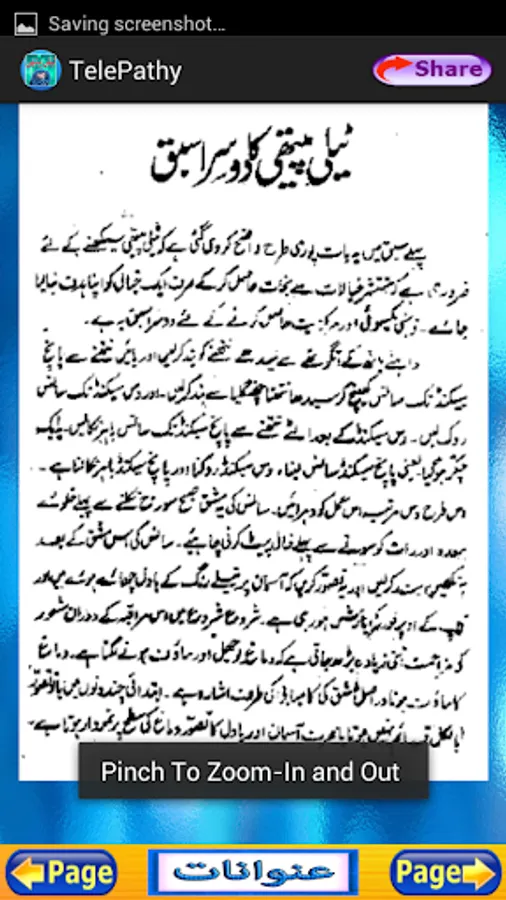 Saving screenshot...
TelePathy
Share
ٹیلی پیتھی کا دوسرا سبق
پہلے سبق میں یہ بات پوری طرح واضح کر دی گئی ہے کہ ٹیلی پیتھی سیکھنے کے لئے
ضروری ہے کہ منتشر خیالات سے نجات حاصل کر کے صرف ایک خیال کو اپنا ہدف بنا لیا
جائے۔ ذہنی یکسوئی اور مرکزیت حاصل کرنے کے لئے دوسرا سبق یہ ہے۔
داہنے ہاتھ کے انگوٹھے سے سیدھے نتھنے کو بند کر لیں اور بائیں نتھنے سے پانچ
سیکنڈ تک سانس کھینچ کر سیدھا نتھنا چھنگلیا سے بند کر لیں۔ اور دس سیکنڈ تک سانس
روک لیں۔ دس سیکنڈ کے بعد الٹے نتھنے سے پانچ سیکنڈ تک سانس باہر نکالیں۔ یہ ایک
چکر ہو گیا یعنی پانچ سیکنڈ سانس لینا، دس سیکنڈ روکنا اور پانچ سیکنڈ باہر نکالنا ہے۔
اس طرح دس مرتبہ اس عمل کو دہرائیں۔ سانس کی یہ مشق صبح سورج نکلنے سے پہلے خلوئے
معدہ اور رات کو سونے سے پہلے خالی پیٹ کرنی چاہیئے۔ سانس کی اس مشق کے بعد
آنکھیں بند کر لیں اور یہ تصور کریں کہ آسمان پر نیلے رنگ کے بادل چھائے ہوئے ہیں اور
آپ کے اوپر نور کی بارش ہو رہی ہے۔ شروع شروع میں اس مراقبہ کے دوران شعور
کی مزاحمت اتنی زیادہ بڑھ جاتی ہے کہ دماغ بوجھل اور ماؤف ہونے لگتا ہے۔ دماغ
کا ماؤف ہونا دراصل مشق کی کامیابی کی طرف اشارہ ہے۔ ابتدائی چند دنوں میں یا تو تصور
بالکل قائم نہیں ہوتا یا صرف آسمان اور بادل کا تصور دماغ کی سطح پر نمودار ہوتا ہے۔
Pinch To Zoom-In and Out
Page
عنوانات
Page